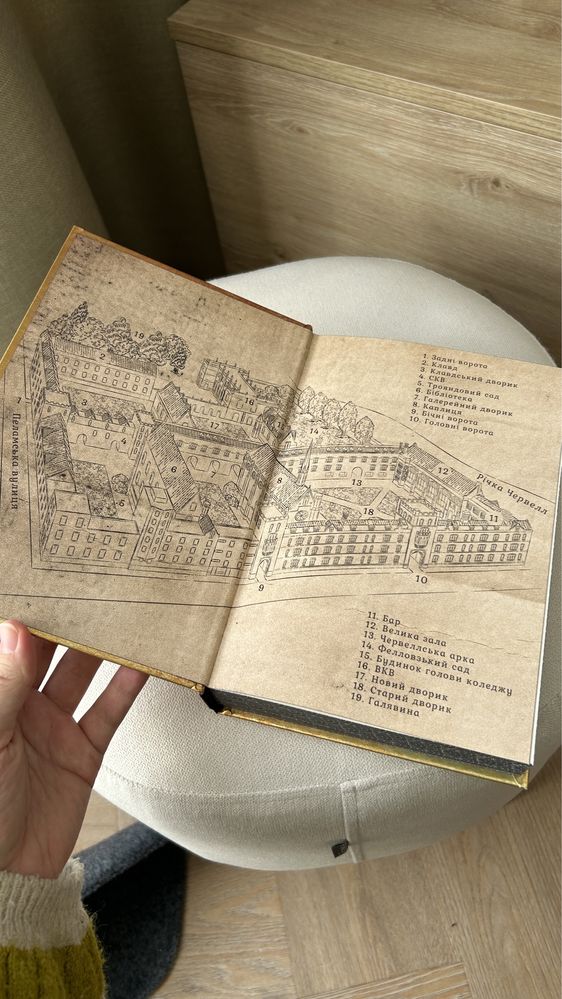 1. Задні ворота
2. Клавд
3. Клавдський дворик
4. СКВ
5. Трояндовий сад
6. Бібліотека
7. Галерейний дворик
8. Каплиця
9. Бічні ворота
10. Головні ворота
19
2
1
16
3
17
4
14
6
8
13
12
18
11
5
9
10
Пеламська вулиця
Річка Червелл
11. Бар
12. Велика зала
13. Червеллська арка
14. Фелловзький сад
15. Будинок голови коледжу
16. ВКВ
17. Новий дворик
18. Старий дворик
19. Галявина